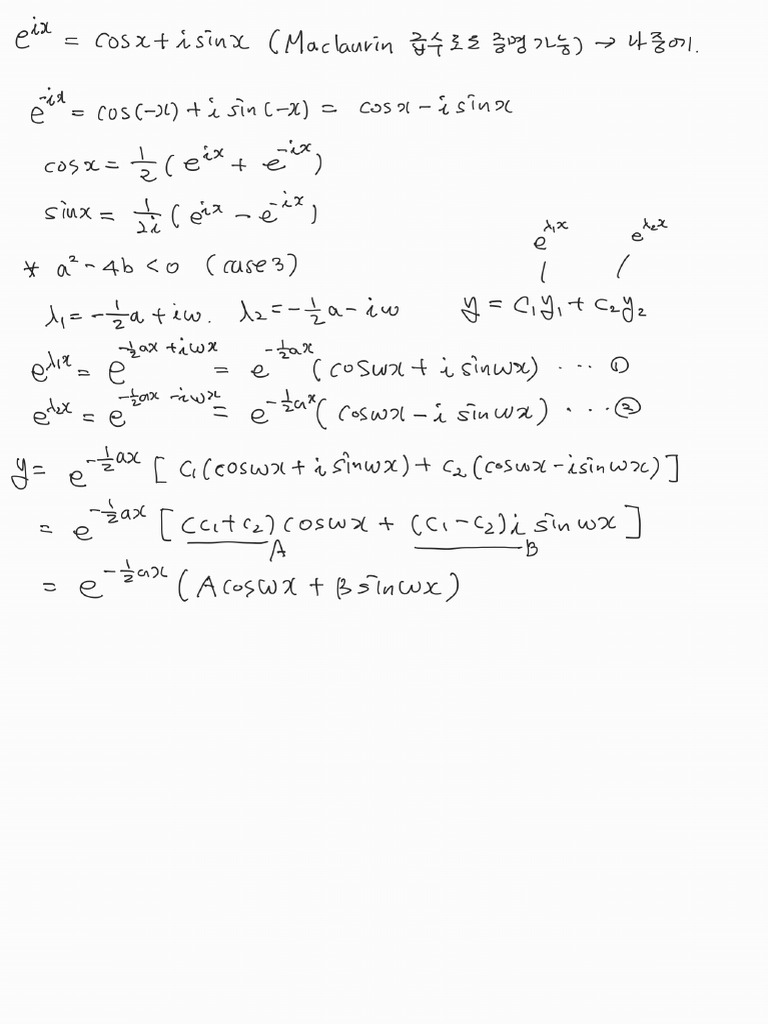 e^{ix} = cosx + i sinx (Maclaurin 급수로도 증명 가능) → 나중에.
e^{-ix} = cos(-x) + i sin(-x) = cosx - i sinx
cosx = \frac{1}{2}(e^{ix} + e^{-ix})
sinx = \frac{1}{2i}(e^{ix} - e^{-ix})
e^{λ₁x} e^{λ₂x}
* a² - 4b < 0 (case 3)
λ₁ = -\frac{1}{2}a + iω. λ₂ = -\frac{1}{2}a - iω y = C₁y₁ + C₂y₂
e^{λ₁x} = e^{-\frac{1}{2}ax + iωx} = e^{-\frac{1}{2}ax}(cosωx + i sinωx) ··· ①
e^{λ₂x} = e^{-\frac{1}{2}ax - iωx} = e^{-\frac{1}{2}ax}(cosωx - i sinωx) ··· ②
y = e^{-\frac{1}{2}ax}[C₁(cosωx + i sinωx) + C₂(cosωx - i sinωx)]
= e^{-\frac{1}{2}ax}[(C₁+C₂)cosωx + (C₁-C₂)i sinωx]
A B
= e^{-\frac{1}{2}ax}(Acosωx + Bsinωx)